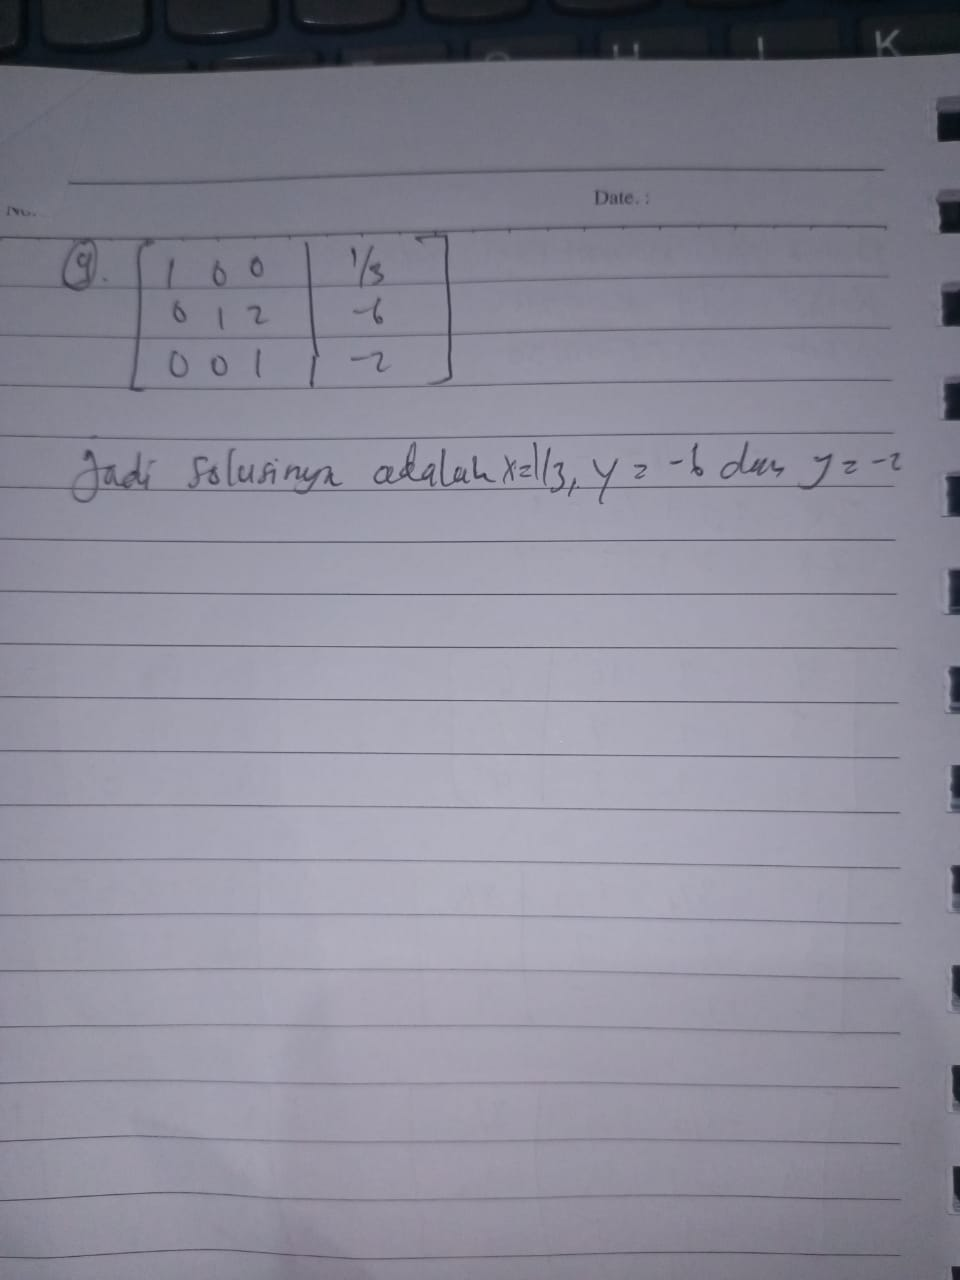 H J K
No.
Date. :
9. [ 1 0 0 | 1/3 ]
0 1 2 | -6
0 0 1 | -2
Jadi solusinya adalah x=1/3, y = -6 dan y = -2